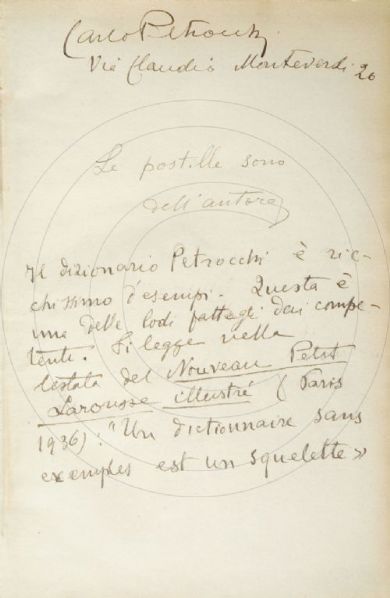 Carlo Petrocchi
Via Claudio Monteverdi 20
Le postille sono
dell'autore
Il dizionario Petrocchi è ric-
chissimo d'esempi. Questa è
una delle lodi fattegli dai compe-
tenti. Si legge nella
testata del Nouveau Petit
Larousse illustré (Paris
1936): "Un dictionnaire sans
exemples est un squelette»